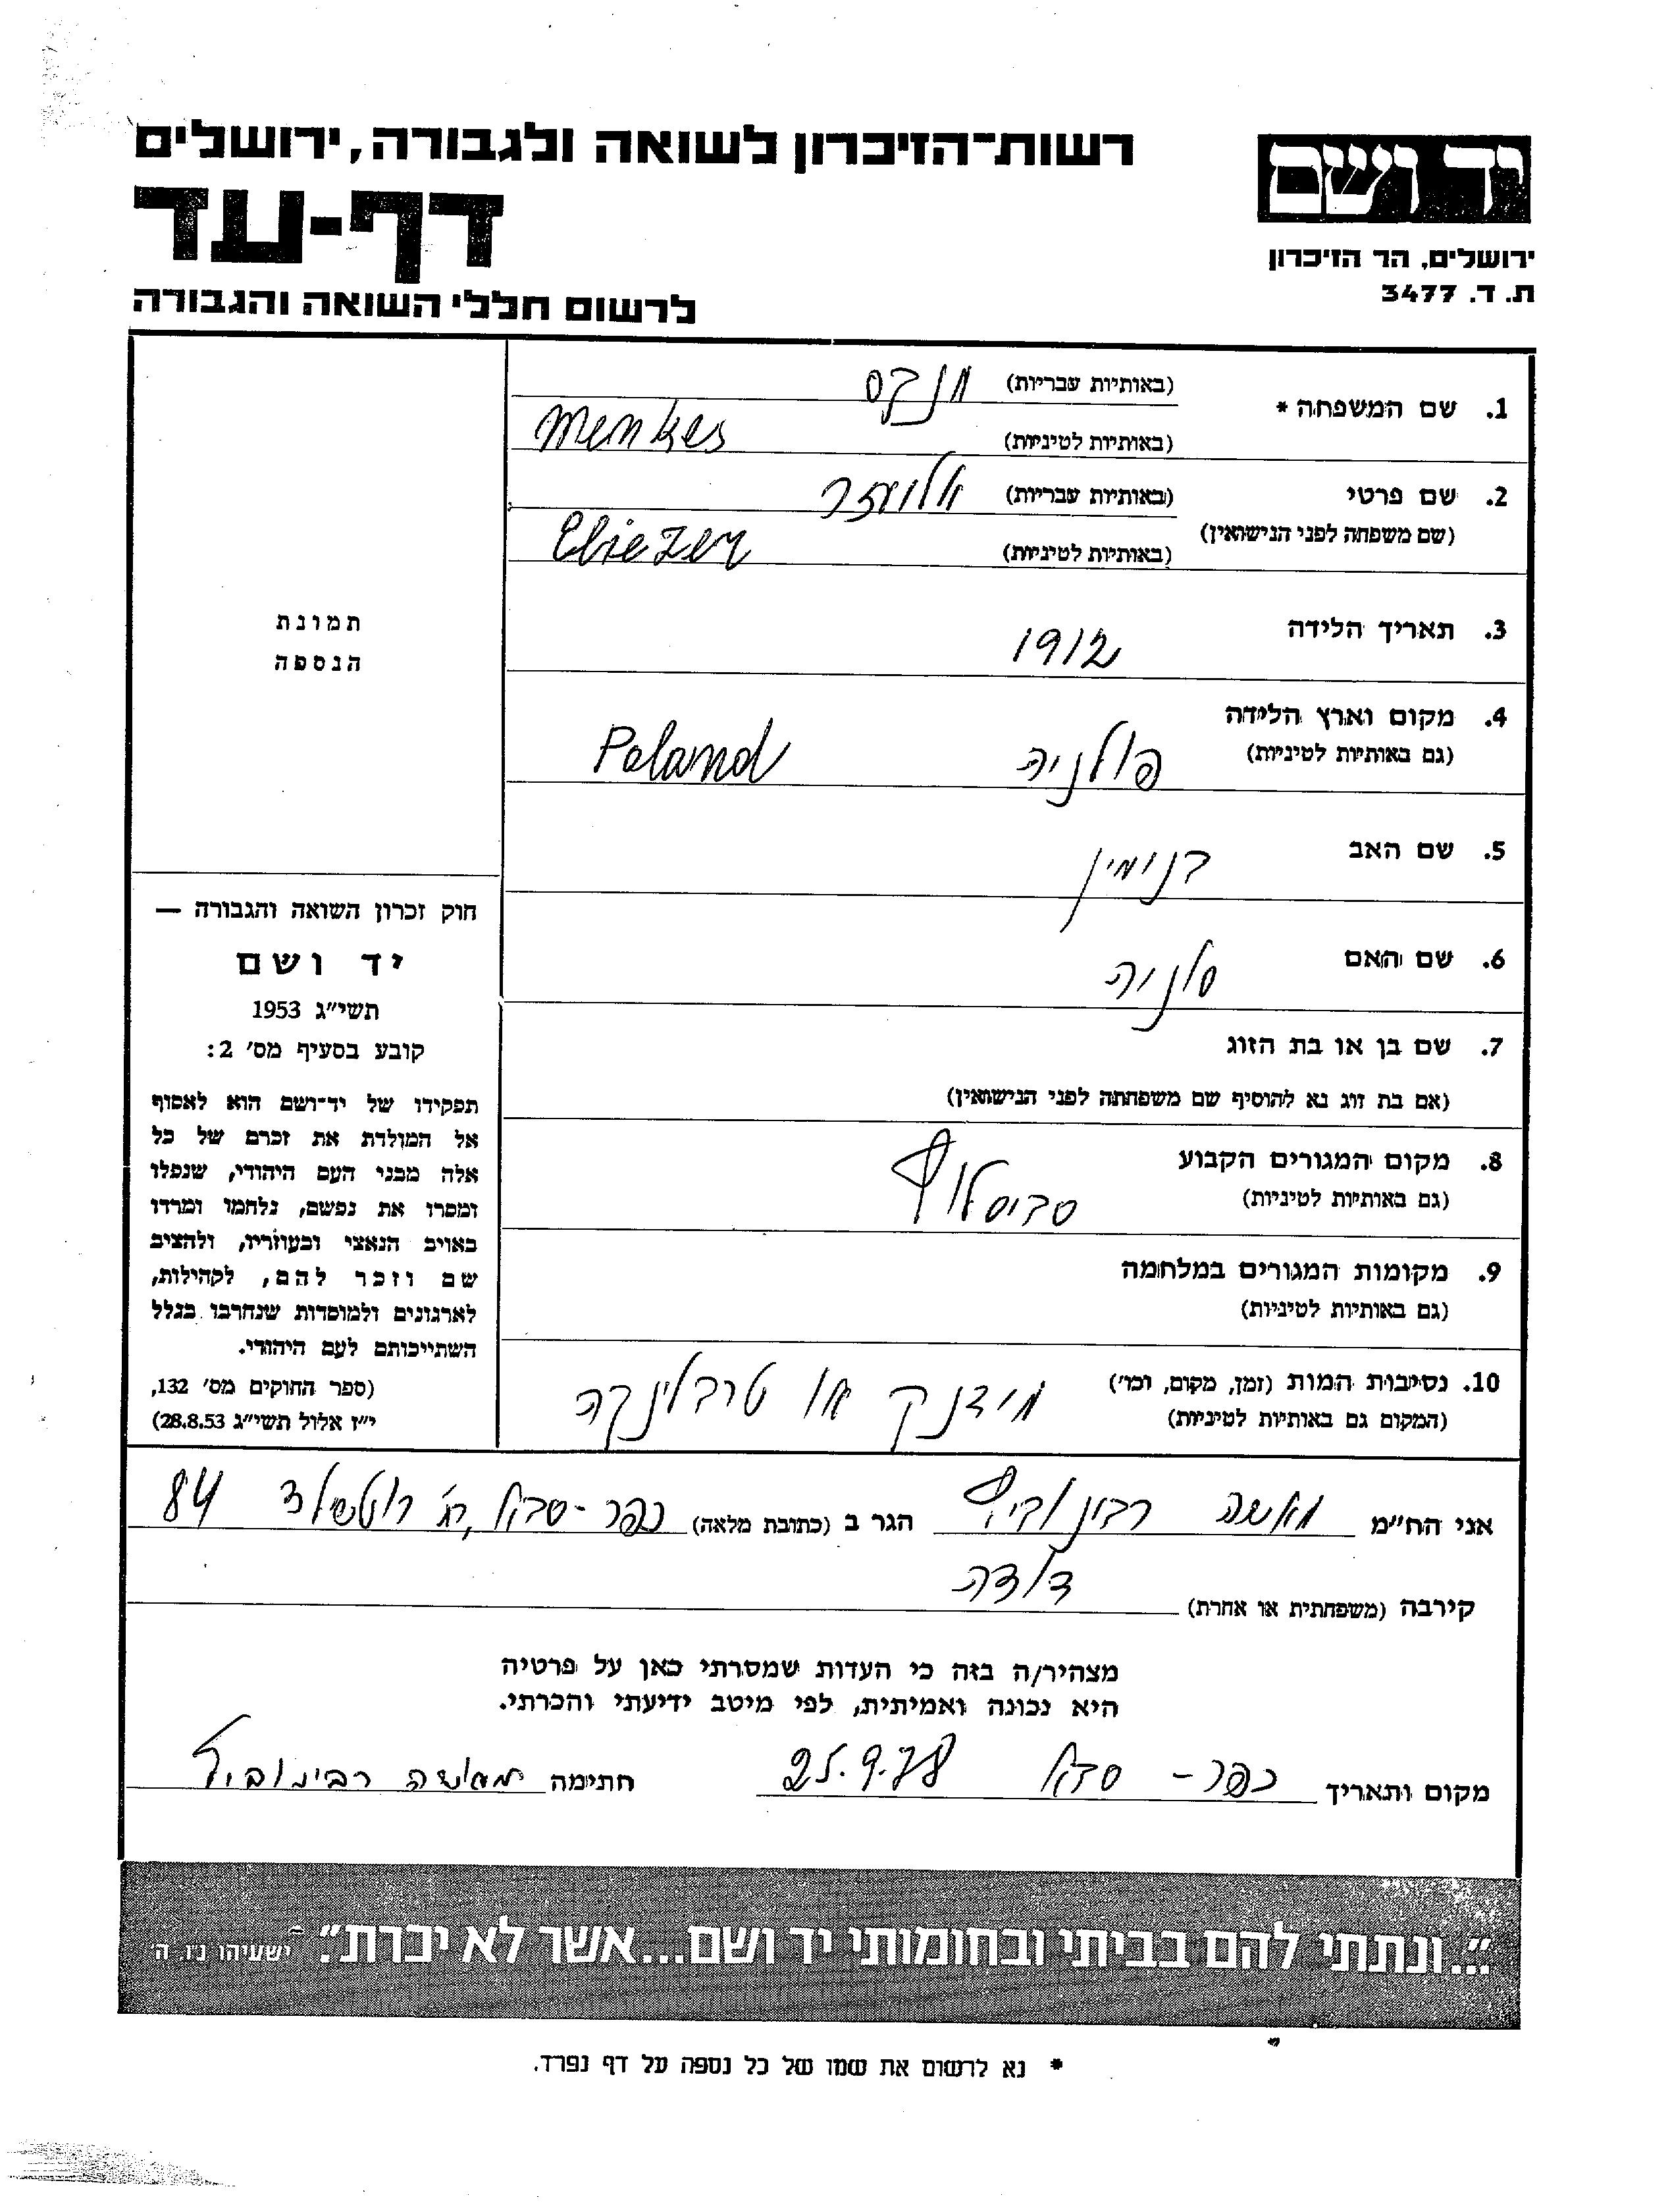 יד ושם
ירושלים, הר הזיכרון
ת. ד. 3477
רשות־הזיכרון לשואה ולגבורה, ירושלים
דף-עד
לרשום חללי השואה והגבורה
1. שם המשפחה *
(באותיות עבריות) מנקס
(באותיות לטיניות) Menkes
2. שם פרטי (באותיות עבריות) אליעזר
(שם משפחה לפני הנישואין)
(באותיות לטיניות) Eliezer
3. תאריך הלידה 1912
4. מקום וארץ הלידה
(גם באותיות לטיניות) פולניה Poland
5. שם האב בנימין
6. שם האם סוניה
7. שם בן או בת הזוג
(אם בת זוג נא להוסיף שם משפחתה לפני הנישואין)
8. מקום המגורים הקבוע
(גם באותיות לטיניות)
9. מקומות המגורים במלחמה
(גם באותיות לטיניות)
10. נסיבות המות (זמן, מקום, וכו')
(המקום גם באותיות לטיניות) מידנק או טרבלינקה
תמונת
הנספה
חוק זכרון השואה והגבורה —
יד ושם
תשי"ג 1953
קובע בסעיף מס' 2:
תפקידו של יד־ושם הוא לאסוף
אל המולדת את זכרם של כל
אלה מבני העם היהודי, שנפלו
ומסרו את נפשם, נלחמו ומרדו
באויב הנאצי ובעוזריו, ולהציב
שם וזכר להם, לקהילות,
לארגונים ולמוסדות שנחרבו בגלל
השתייכותם לעם היהודי.
(ספר החוקים מס' 132,
י"ז אלול תשי"ג 28.8.53)
אני הח"מ מאשה רבינוביץ הגר ב (כתובת מלאה) כפר-סבא, רח' רוטשילד 84
קירבה (משפחתית או אחרת) דודה
מצהיר/ה בזה כי העדות שמסרתי כאן על פרטיה
היא נכונה ואמיתית, לפי מיטב ידיעתי והכרתי.
מקום ותאריך כפר-סבא 25.9.78 חתימה מאשה רבינוביץ
"...ונתתי להם בביתי ובחומותי יד ושם...אשר לא יכרת". ישעיהו נ"ו, ה'
* נא לרשום את שמו של כל נספה על דף נפרד.